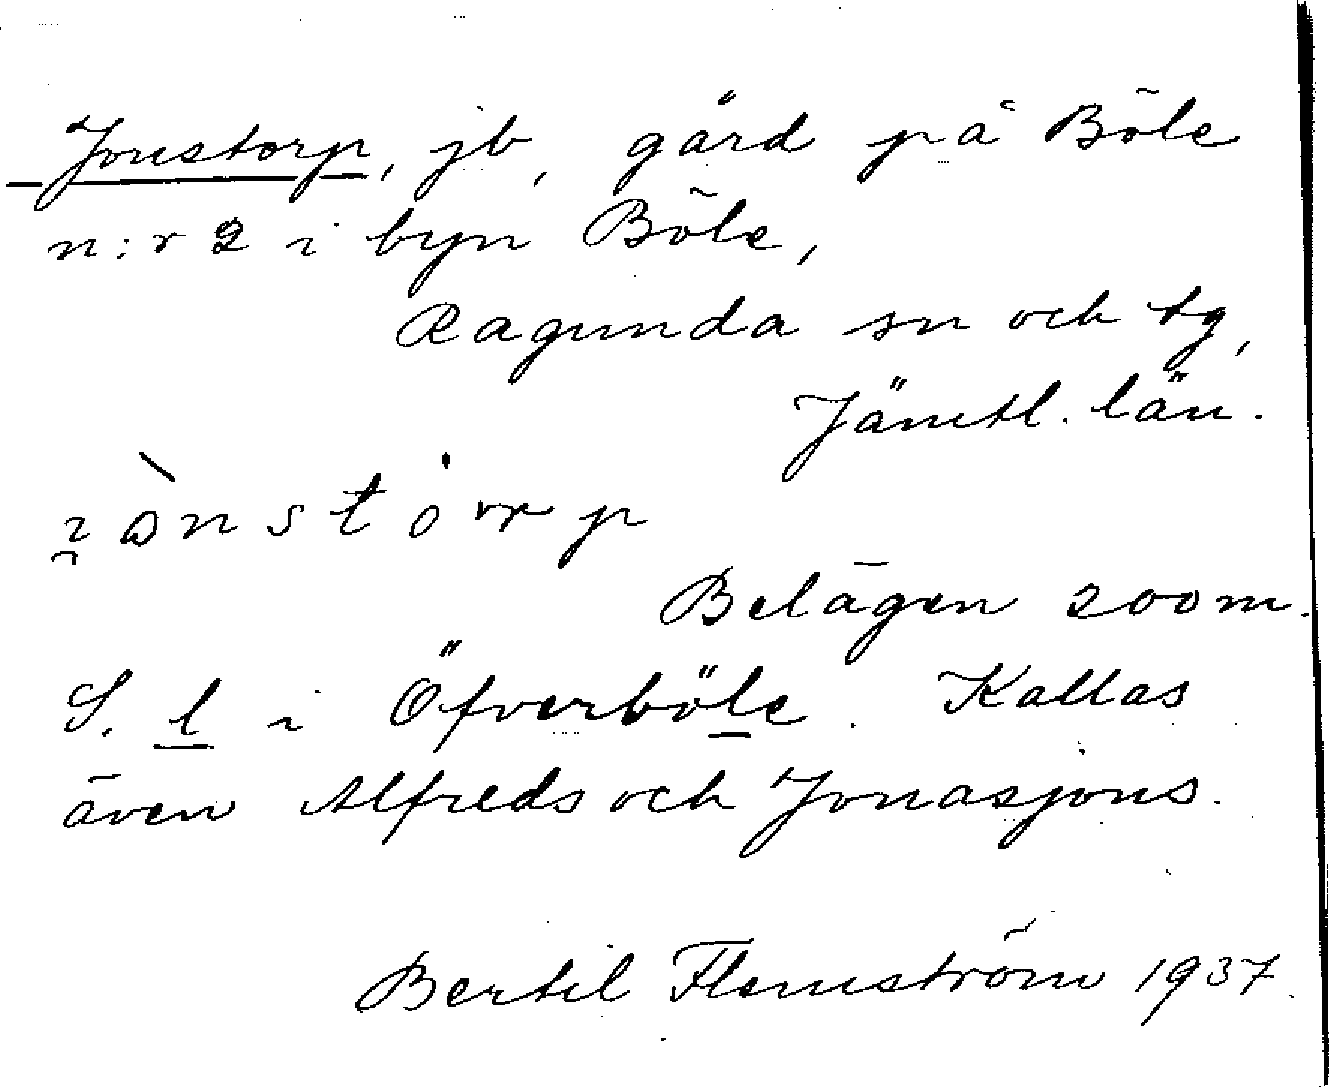 Jonstorp, jb, gård på Böle
n:r 2 i byn Böle,
Ragunda sn och tg,
Jämtl. län.
Belägen 200 m.
S. l i Öfverböle. Kallas
även Alfreds och Jonasjons.
Bertil Flemström 1937